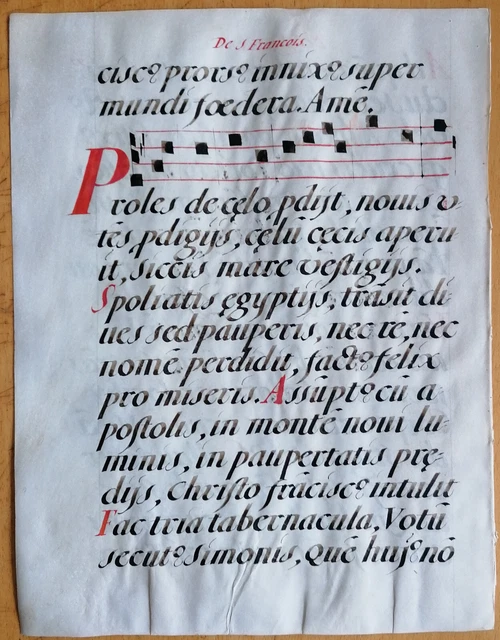 De S Francois.
cisc9 prors9 innix9 super
mundi fœdera. Amē.
Proles de cęlo pdijt, nouis v
tēs pdigijs, cęlū cęcis aperu
it, siccis mare vestigijs.
Spoliatis ęgyptijs, trāsit di-
ues sed pauperis, nec rē, nec
nomē perdidit, fact9 felix
pro miseris. Assūpt9 cū a-
postolis, in montē noui lu-
minis, in paupertatis prę-
dijs, Christo frācisc9 intulit
Fac tria tabernacula, Votū
secut9 Simonis, Quē huj9 nō